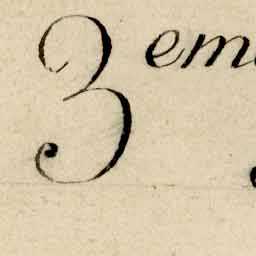 3 em